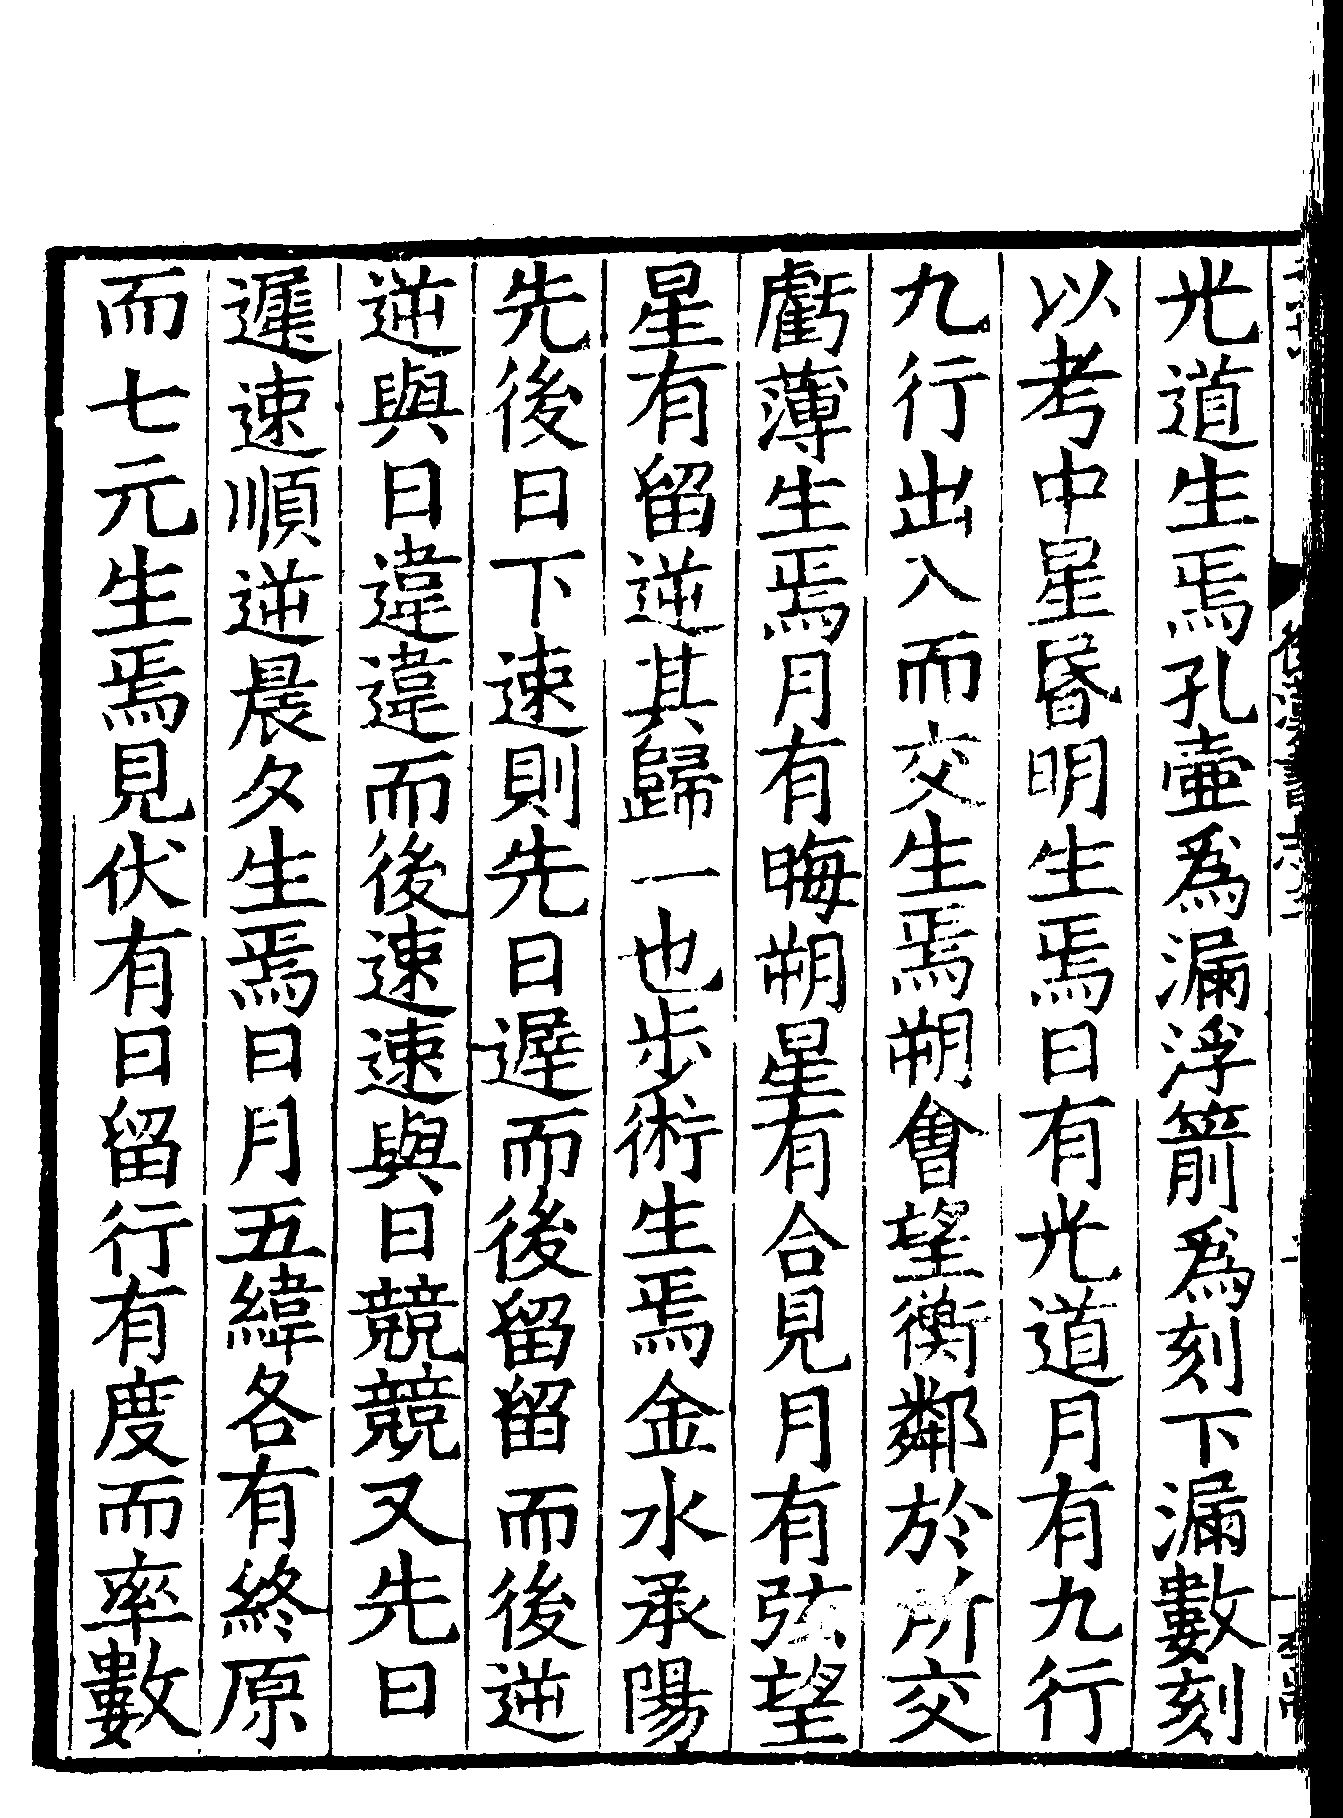 光道生焉孔壷爲漏浮箭爲刻下漏數刻
以考中星昬明生焉日有光道月有九行
九行出入而交生焉朔會望衡鄰於所交
虧薄生焉月有晦朔星有合見月有弦望
星有留逆其歸一也步術生焉金水承陽
先後日下速則先日遲而後留留而後逆
逆與日違違而後速速與日競競又先日
遲速順逆晨夕生焉日月五緯各有終原
而七元生焉見伏有日留行有度而率數